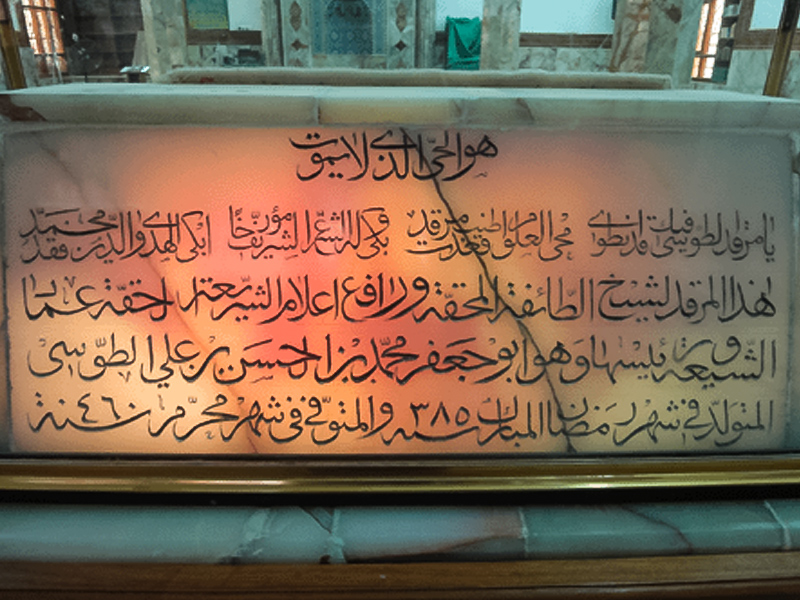 هو الحي الذي لا يموت
يا مرقد الطوسي فيك قد انطوى محي العلوم فكنت اطيب مرقد بكى له الشرع الشريف مؤرخا ابكى الهدى والدين فقد محمد
هذا المرقد لشيخ الطائفة المحقة ورافع اعلام الشريعة الحقة عماد
الشيعة ورئيسها وهو ابو جعفر محمد بن الحسن بن علي الطوسي
المتولد في شهر رمضان المبارك سنه ٣٨٥ والمتوفى في شهر محرم سنة ٤٦٠